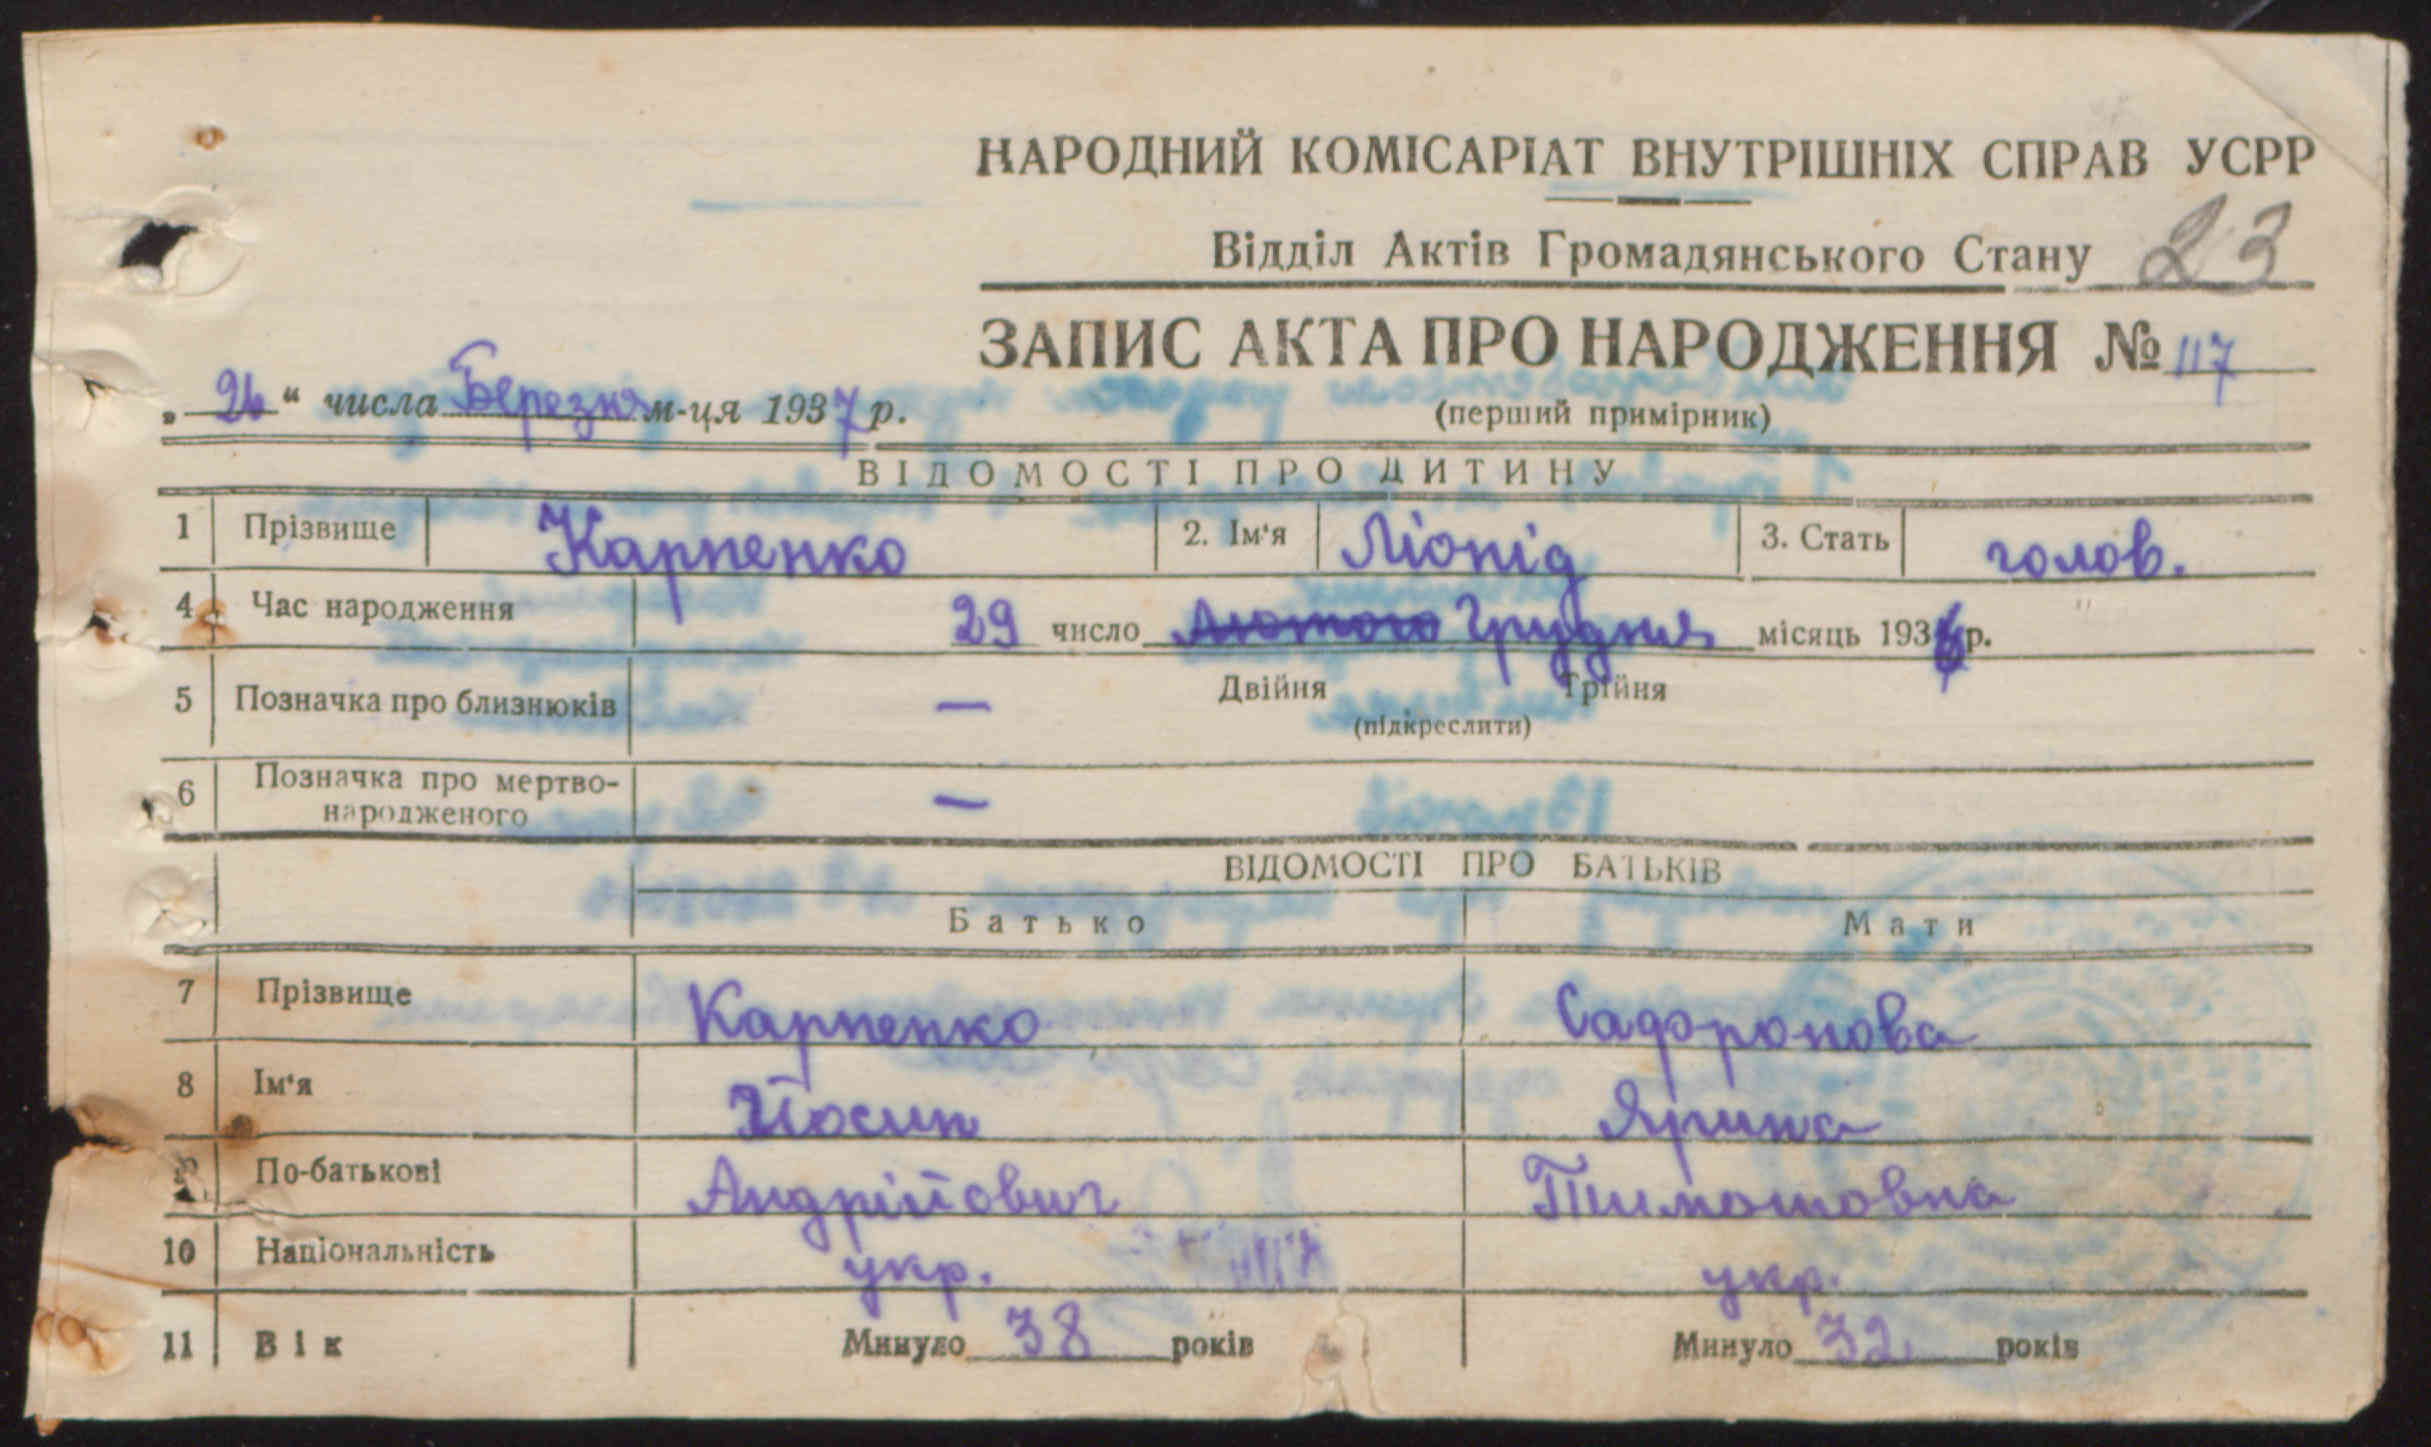 НАРОДНИЙ КОМІСАРІАТ ВНУТРІШНІХ СПРАВ УСРР
Відділ Актів Громадянського Стану 23
ЗАПИС АКТА ПРО НАРОДЖЕННЯ № 117
„ 26 “ числа Березня м-ця 1937 р.
(перший примірник)
ВІДОМОСТІ ПРО ДИТИНУ
1 Прізвище Карпенко 2. Ім‘я Ліонід 3. Стать голов.
4 Час народження 29 число Лютого Грудня місяць 1936 р.
5 Позначка про близнюків — Двійня Трійня
(підкреслити)
6 Позначка про мертво-
народженого —
ВІДОМОСТІ ПРО БАТЬКІВ
Батько Мати
7 Прізвище Карпенко Сафронова
8 Ім‘я Йосип Ярина
9 По-батькові Андрійович Тимошовна
10 Національність укр. укр.
11 Вік Минуло 38 років Минуло 32 років